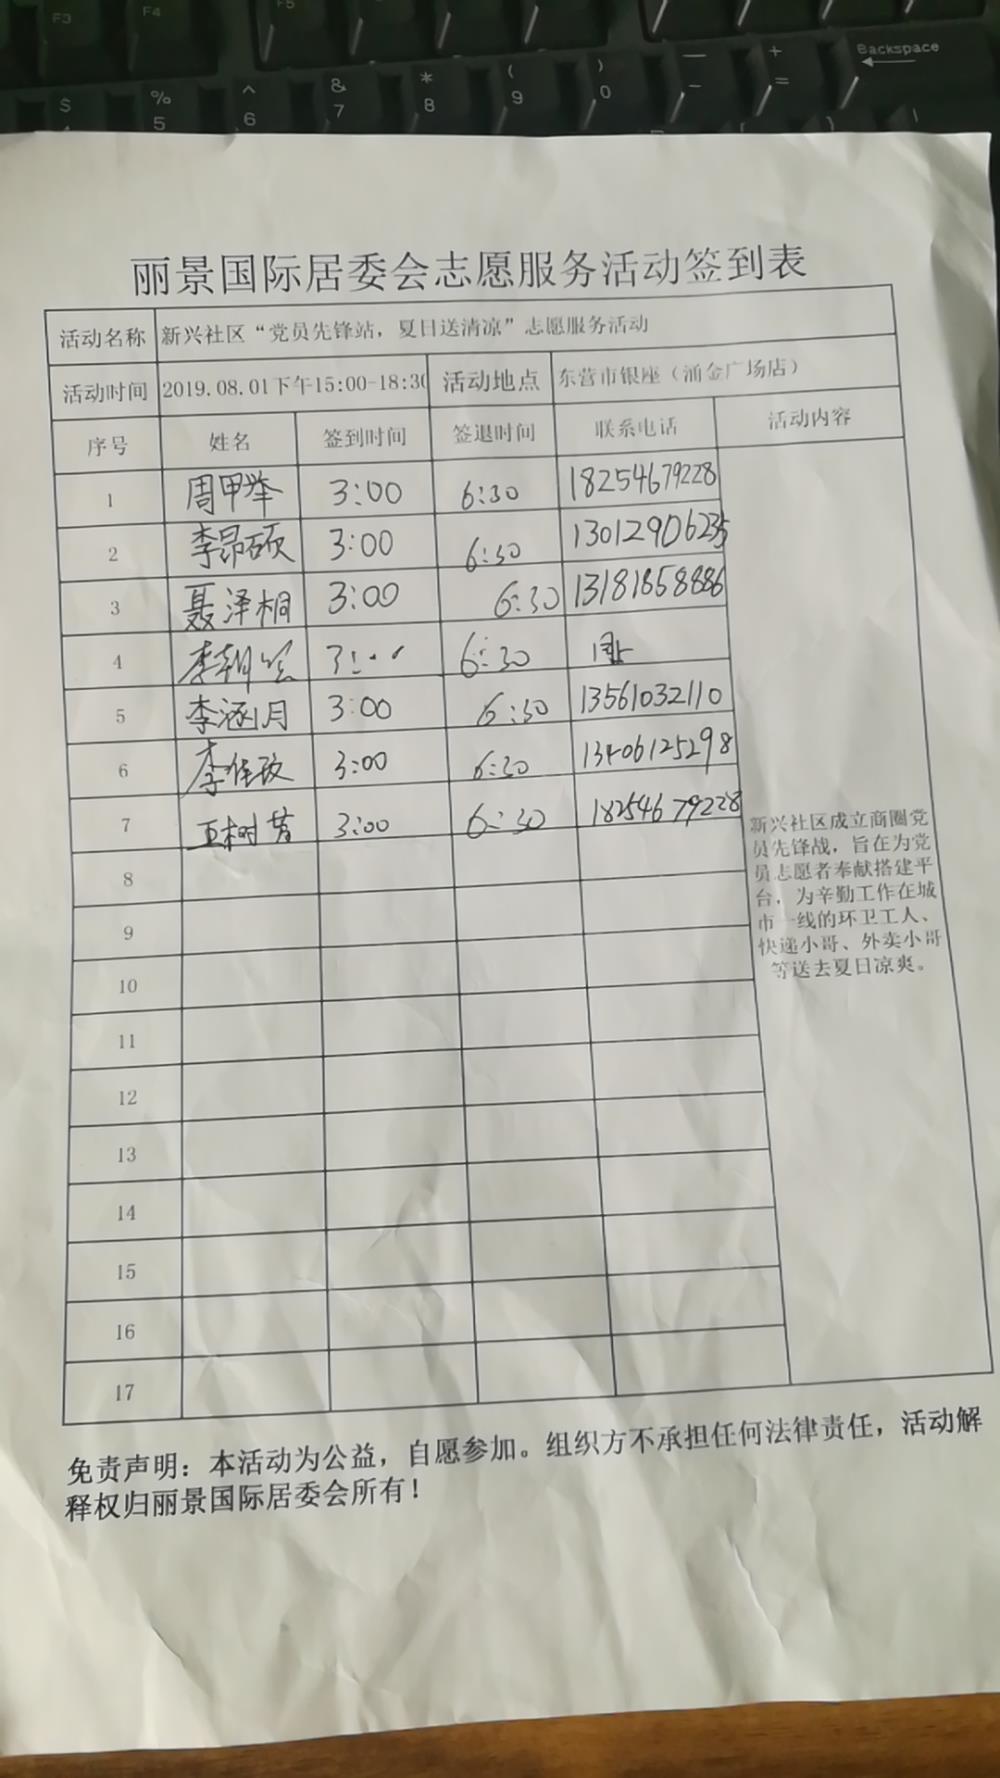 F3 F4 F5
Backspace
$ % ^ & * ( ) — +
5 6 7 8 9 0 - =
丽景国际居委会志愿服务活动签到表
活动名称 新兴社区“党员先锋站，夏日送清凉”志愿服务活动
活动时间 2019.08.01下午15:00-18:30 活动地点 东营市银座（涌金广场店）
序号 姓名 签到时间 签退时间 联系电话 活动内容
1 周甲举 3:00 6:30 18254679228
2 李昂硕 3:00 6:30 13012906235
3 聂泽桐 3:00 6:30 13181858886
4 李 3:·· 6:30 同上
5 李涵月 3:00 6:30 13561032110
6 李佳 3:00 6:30 13406125298
7 王树芳 3:00 6:30 18254679228
8
9
10
11
12
13
14
15
16
17
新兴社区成立商圈党
员先锋战，旨在为党
员志愿者奉献搭建平
台，为辛勤工作在城
市一线的环卫工人、
快递小哥、外卖小哥
等送去夏日凉爽。
免责声明：本活动为公益，自愿参加。组织方不承担任何法律责任，活动解
释权归丽景国际居委会所有！